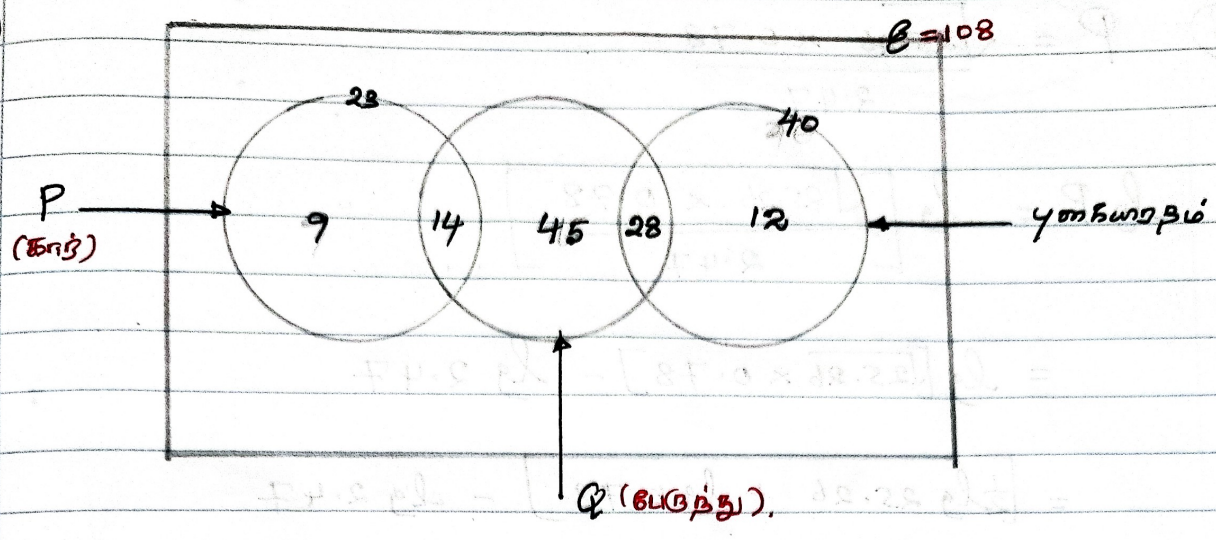 ℰ =108
23
40
P
(கார்)
9 14 45 28 12
புகையிரதம்
Q (பேருந்து).